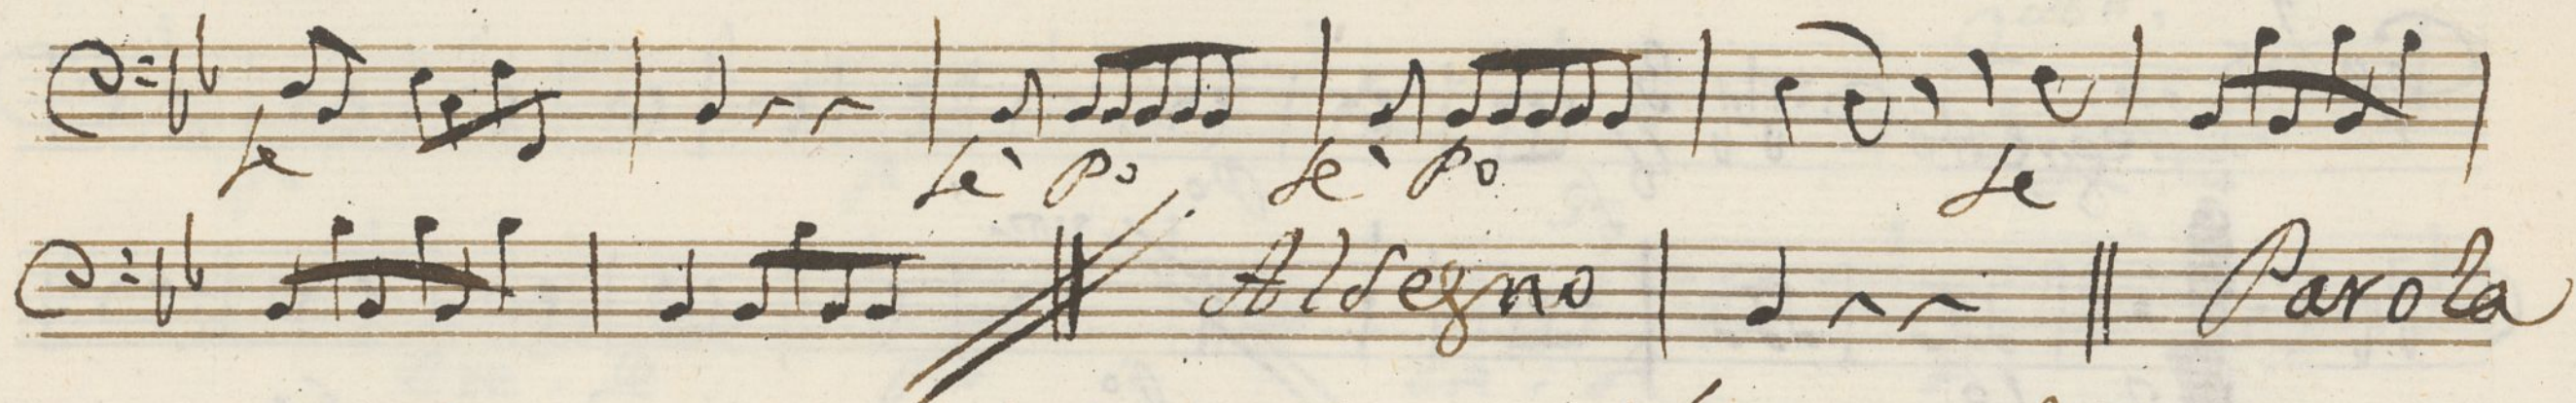 fe fe po fe po fe
Al Segno Parola